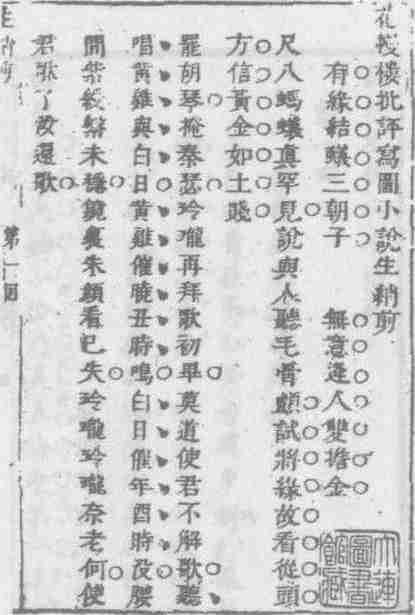 花幔樓批評寫圖小說生綃剪
有緣結蟻三朝子　無意逢人雙擔金
尺八螞蟻真罕見說與人聽毛骨顫試將緣故看從頭
方信黃金如土賤
罷胡琴掩秦瑟玲瓏再拜歌初畢莫道使君不解歌聽
唱黃雞與白日黃雞催曉丑時鳴白日催年酉時沒腰
間紫綬繫未穩鏡裏朱顏看已失玲瓏玲瓏奈老何使
君歌了汝還歌
生綃剪
第一回
大連圖書館藏